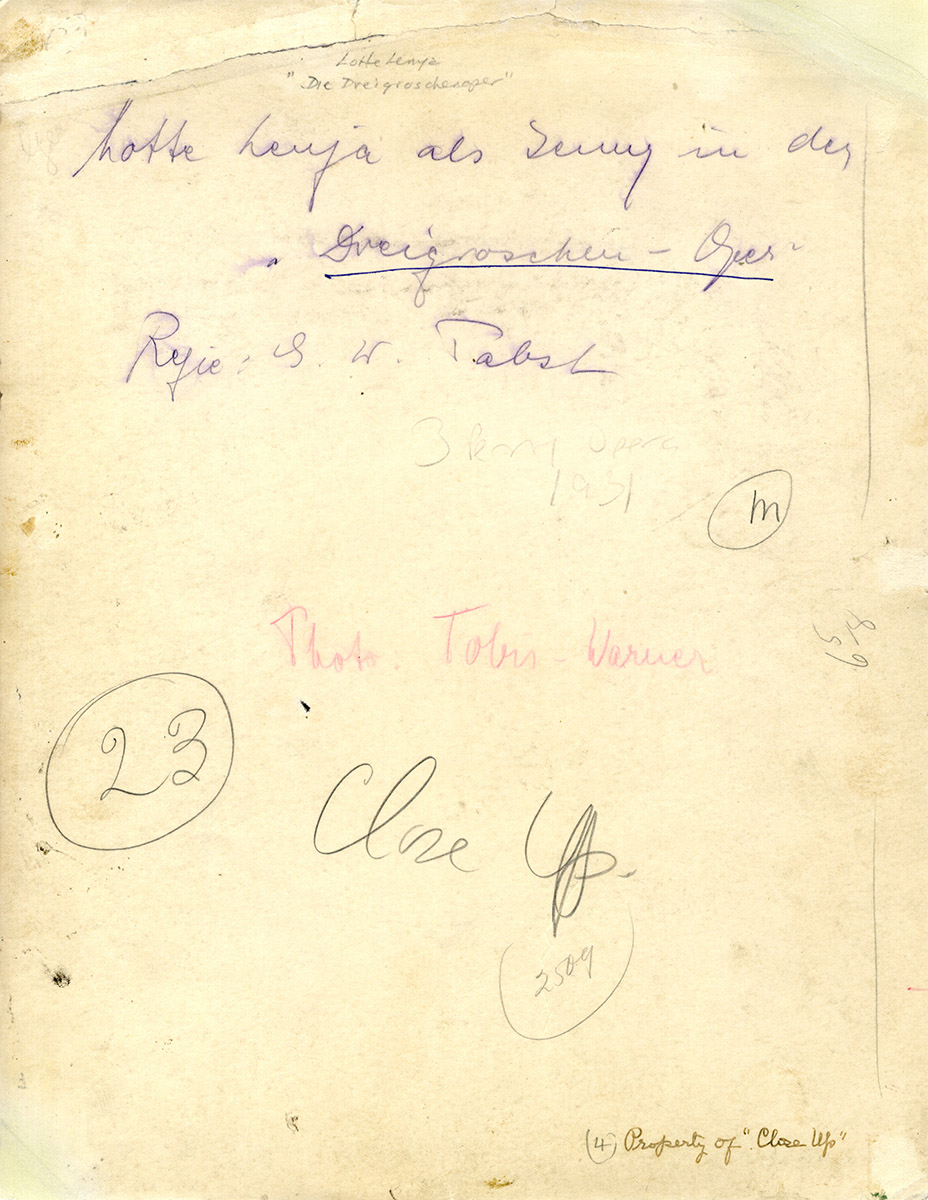 Lotte Lenya
"Die Dreigroschenoper"
Lotte Lenja als Jenny in der
„Dreigroschen-Oper"
Regie: G. W. Pabst
3 Penny Opera
1931
m
Photo. Tobis-Warner
23
Close Up.
2509
(4) Property of "Close Up"